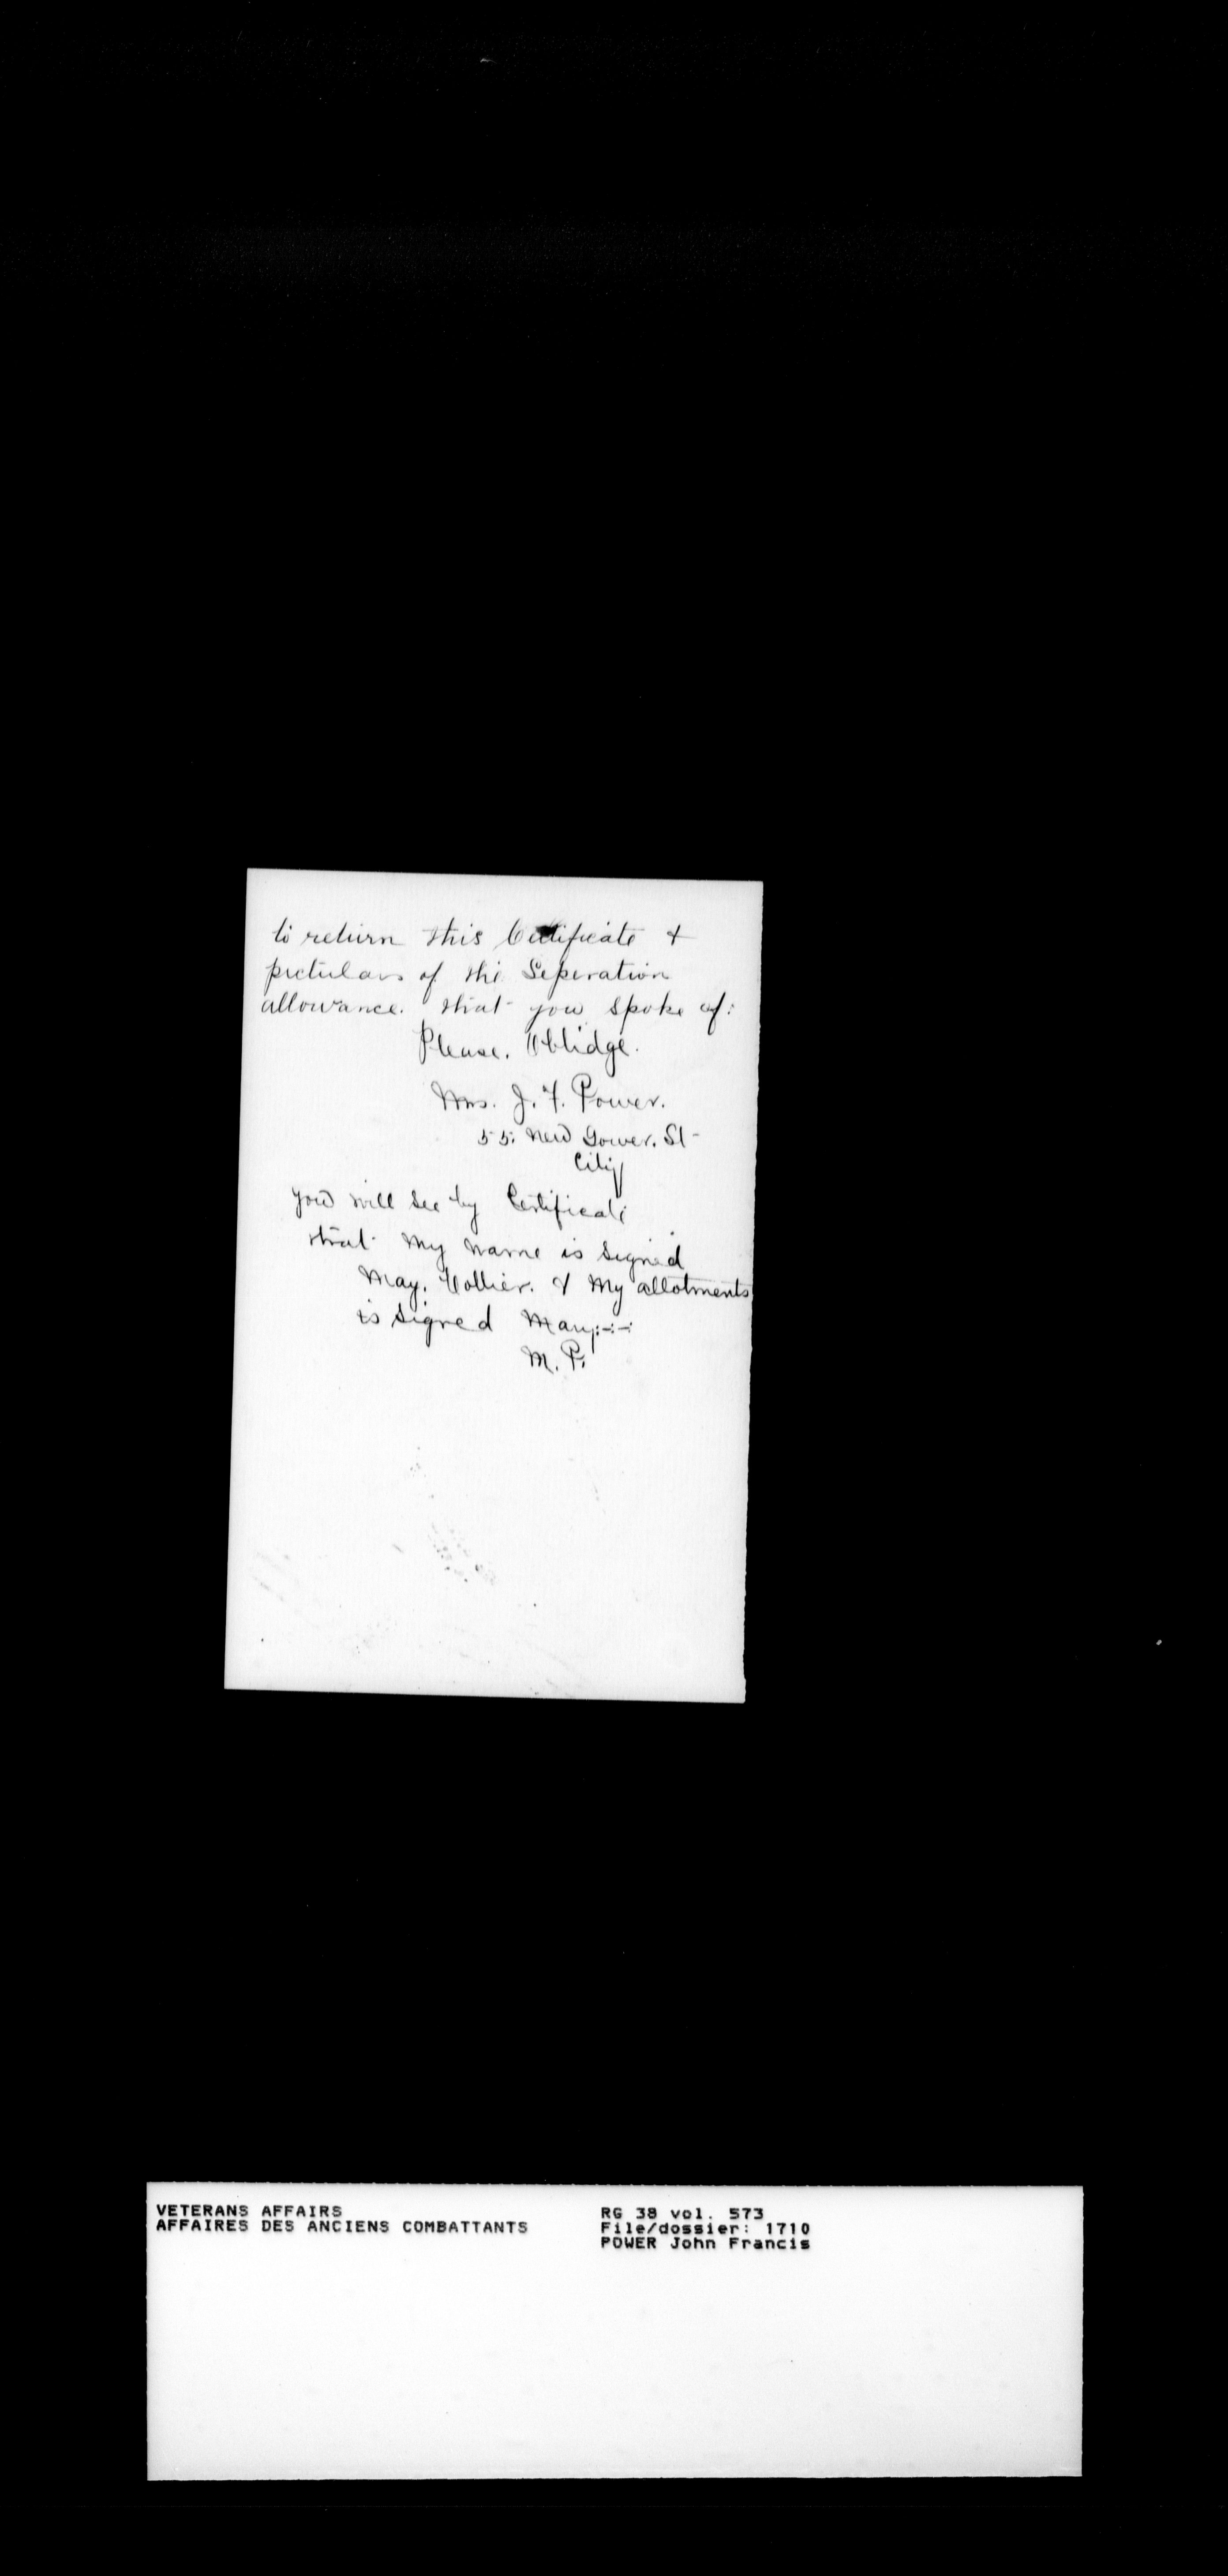 to return this Certificate &
pictulars of the Seperation
allowance. that you spoke of:
Please. Oblidge.
Mrs. J. F. Power.
55. New Gower. St
City
you will see by Certificate
that my name is signed
May. Collier. & My allotments
is signed Mary:-:-
M. P.
VETERANS AFFAIRS
AFFAIRES DES ANCIENS COMBATTANTS
RG 38 vol. 573
File/dossier: 1710
POWER John Francis